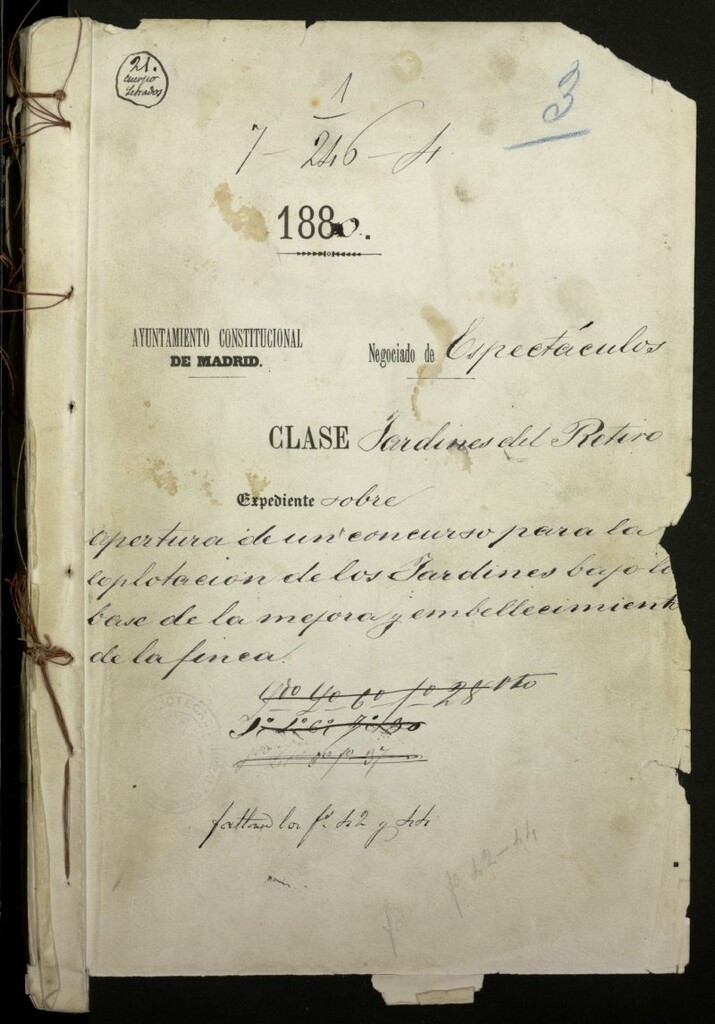 21.
Cuerpo
Letrados
3
1
7 - 246 - 4
1880.
AYUNTAMIENTO CONSTITUCIONAL
DE MADRID.
Negociado de Espectáculos
CLASE Jardines del Retiro
Expediente sobre
apertura de un concurso para la
esplotacion de los Jardines bajo la
base de la mejora y embellecimiento
de la finca.
fo 28 Vto
fo 37
faltan los fs. 42 y 44
fo 42-44